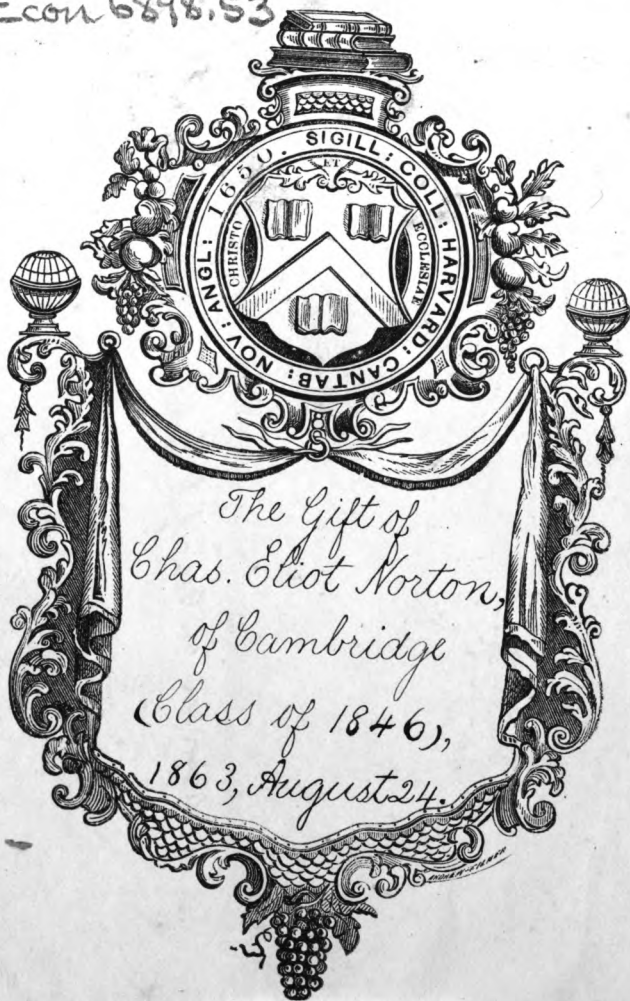 Econ 6898.53
SIGILL: COLL: HARVARD: CANTAB: NOV: ANGL: 1650.
ET
CHRISTO
ECCLESIAE
The Gift of
Chas. Eliot Norton,
of Cambridge
(Class of 1846),
1863, August 24.